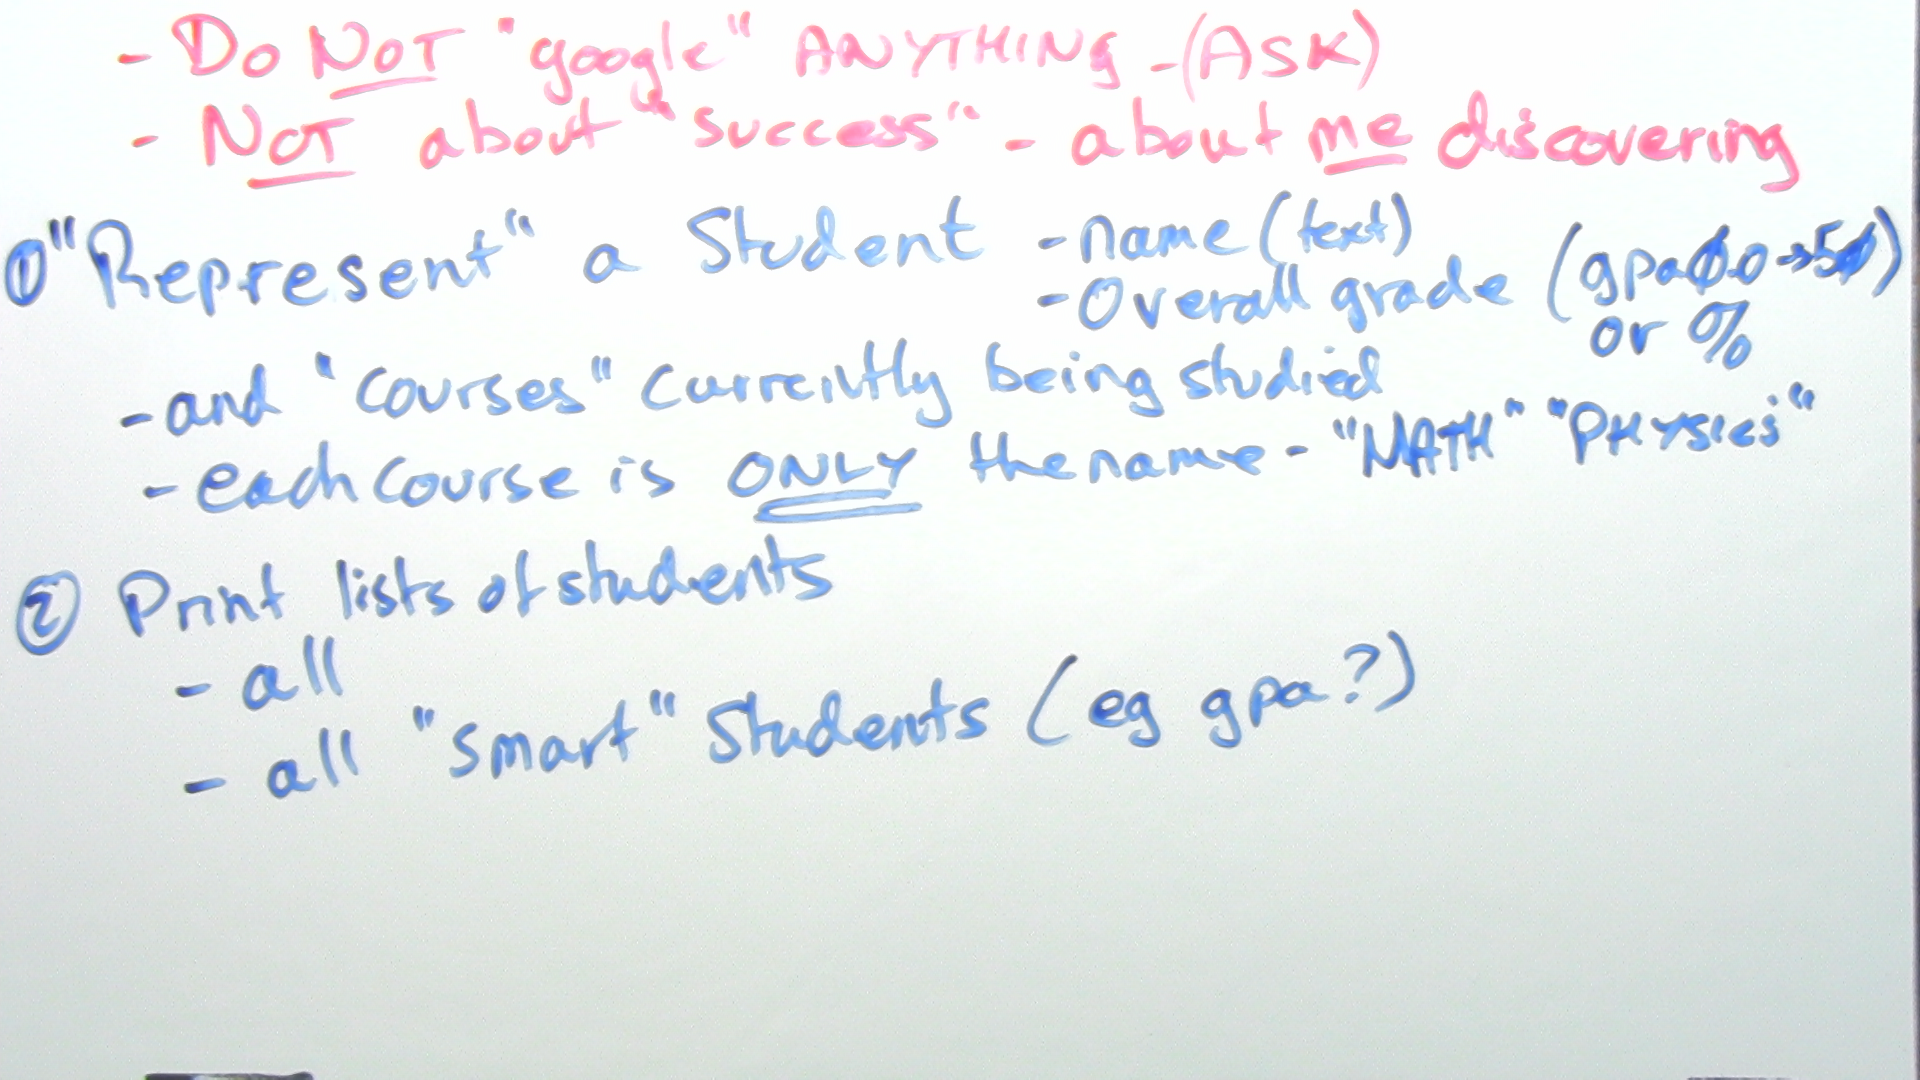 - Do NOT "google" ANYTHING - (ASK)
- NOT about "success" - about me discovering
① "Represent" a Student - name (text)
- Overall grade (gpa 0.0 → 50)
or %
- and "courses" currently being studied
- each course is ONLY the name - "MATH" "PHYSICS"
② Print lists of students
- all
- all "smart" Students (eg gpa?)